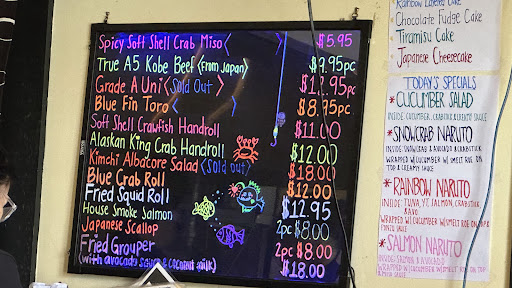 Spicy Soft Shell Crab Miso < > $5.95
True A5 Kobe Beef <From Japan> $9.95pc
Grade A Uni <Sold Out>
Blue Fin Toro < > $8.95pc
Soft Shell Crawfish Handroll $11.00
Alaskan King Crab Handroll $12.00
Kimchi Albacore Salad <Sold out> $18.00
Blue Crab Roll $12.00
Fried Squid Roll $12.95
House Smoke Salmon 2pc $8.00
Japanese Scallop 2pc $8.00
Fried Grouper
(with avocado sauce & coconut milk) $18.00
Rainbow Layered Cake
Chocolate Fudge Cake
Tiramisu Cake
Japanese Cheesecake
TODAY'S SPECIALS
* CUCUMBER SALAD
INSIDE CUCUMBER, CRABSTICK & SAUCE
* SNOWCRAB NARUTO
INSIDE SNOWCRAB & AVOCADO & CRABSTICK
WRAPPED W/CUCUMBER W/ SMELT ROE ON
TOP & CREAMY SAUCE
* RAINBOW NARUTO
INSIDE: TUNA, YT, SALMON, CRABSTICK,
AVO.
WRAPPED W/CUCUMBER W/SMELT ROE ON TOP
PONZU SAUCE
* SALMON NARUTO
INSIDE: SALMON & AVOCADO
WRAPPED W/CUCUMBER W/SMELT ROE ON
TOP